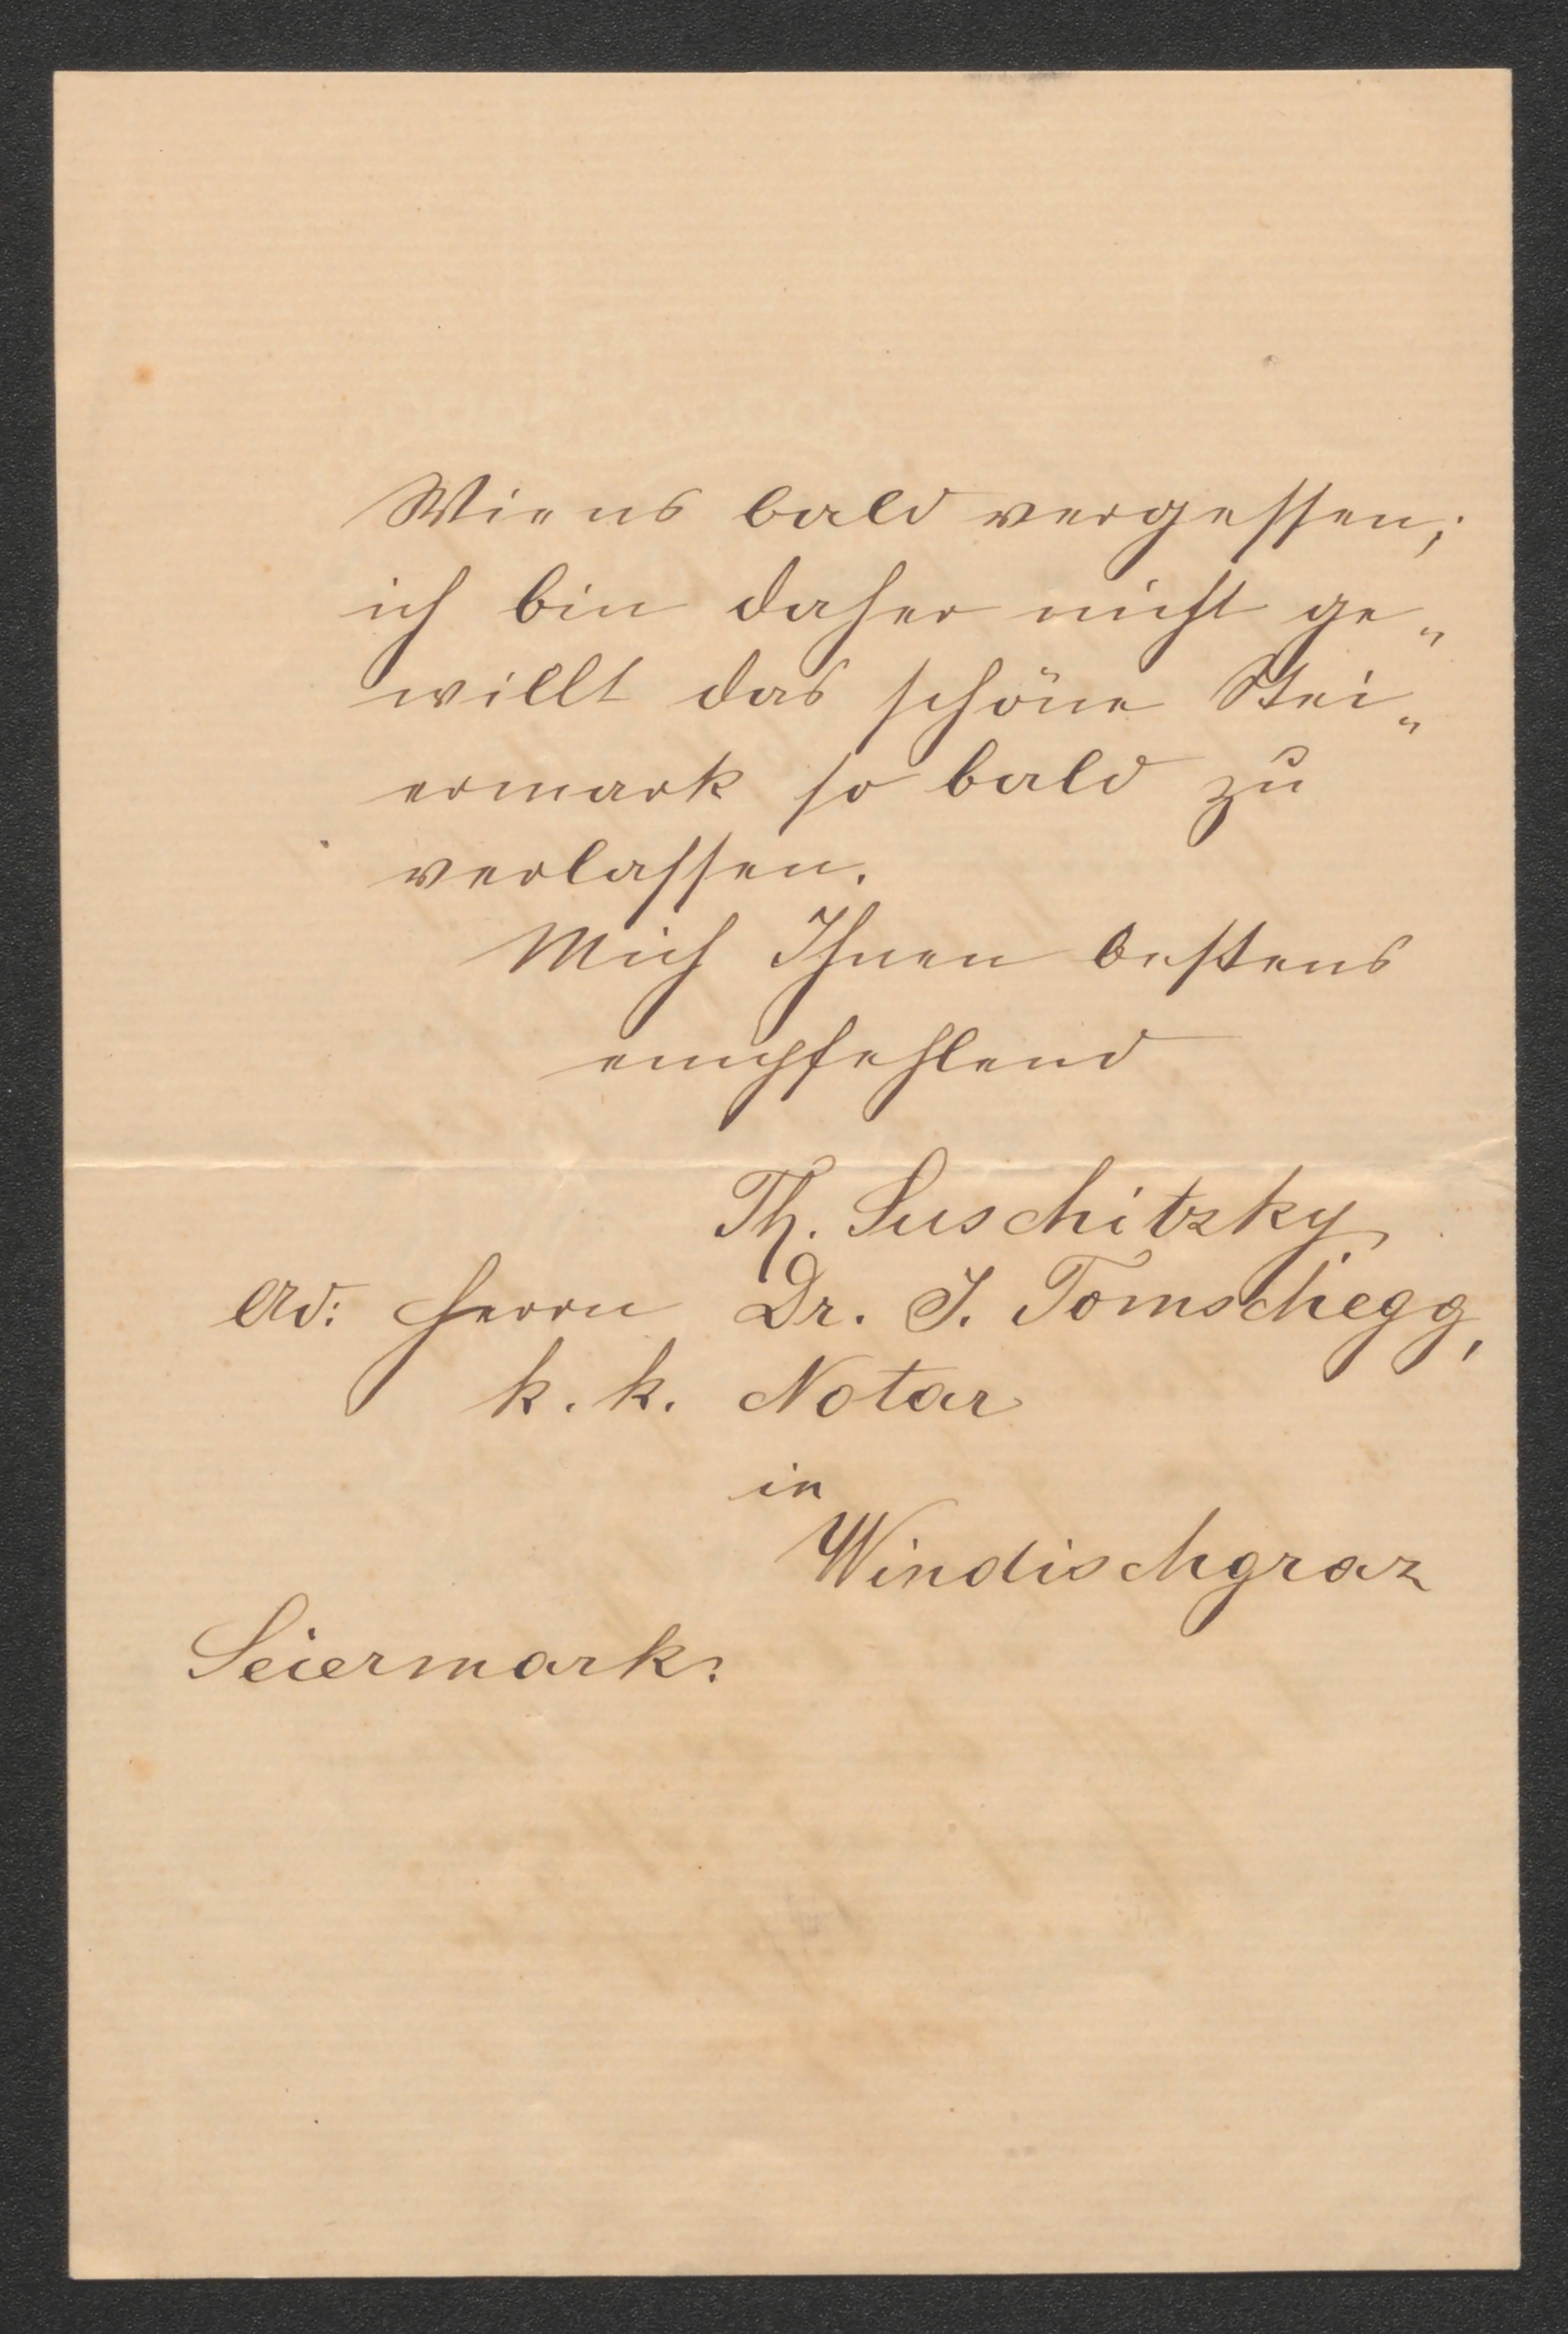 Wiens bald vergessen;
ich bin daher nicht ge„
willt das schöne Stei„
ermark so bald zu
verlassen.
Mich Ihnen bestens
empfehlend
Th. Suschitzky
Ad: Herrn Dr. J. Tomschegg,
k. k. Notar
in
Windischgraz
Seiermark.